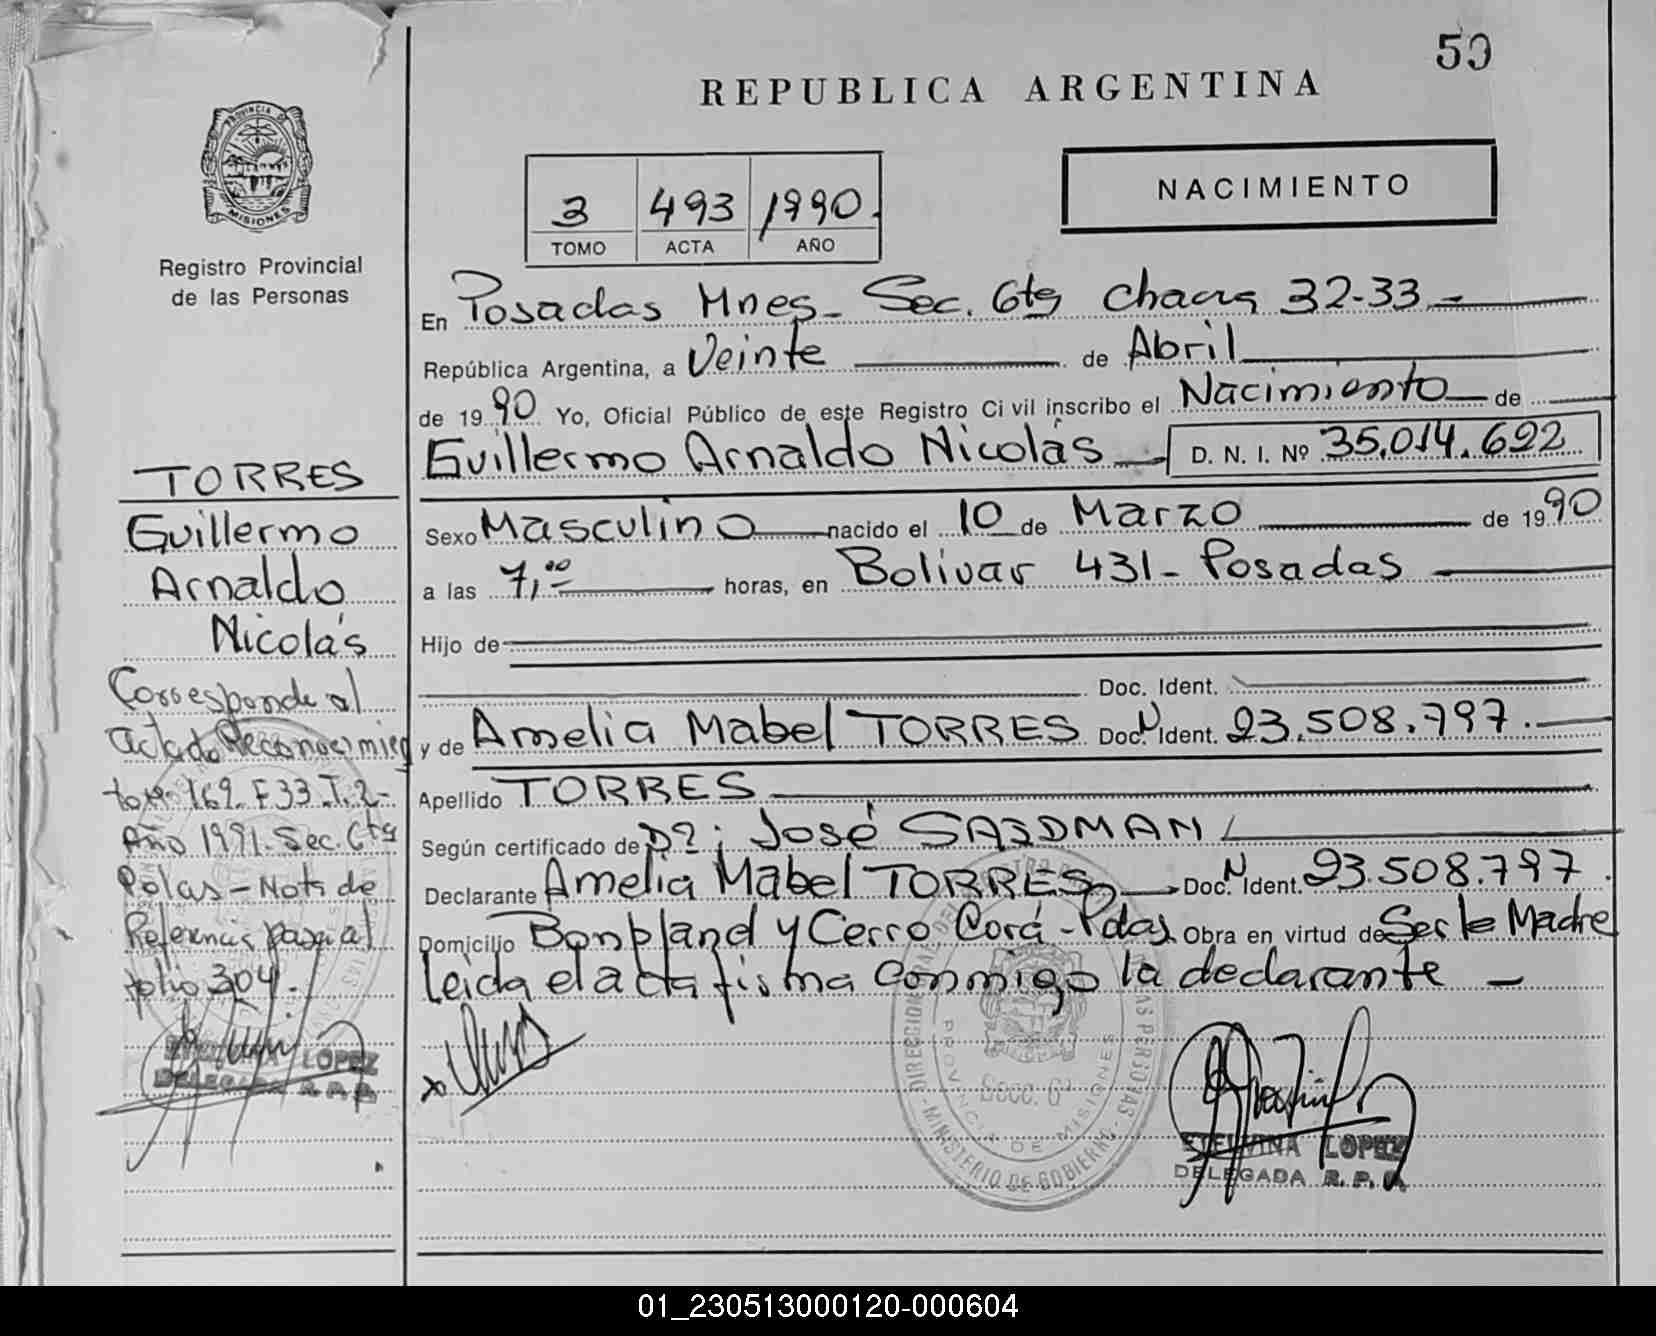 50
REPUBLICA ARGENTINA
PROVINCIA DE
MISIONES
Registro Provincial
de las Personas
3 493 1990.
TOMO ACTA AÑO
NACIMIENTO
En Posadas Mnes- Sec. 6ta Chacra 32-33.-
República Argentina, a Veinte de Abril
de 1990 Yo, Oficial Público de este Registro Civil inscribo el Nacimiento de
Guillermo Arnaldo Nicolás D. N. I. Nº 35.014.692
Sexo Masculino nacido el 10 de Marzo de 1990
a las 7,00 horas, en Bolivar 431- Posadas
Hijo de
Doc. Ident.
y de Amelia Mabel TORRES Doc. N Ident. 23.508.797.
Apellido TORRES
Según certificado de José
Declarante Amelia Mabel TORRES Doc. N Ident. 23.508.797.
Domicilio Bonpland y Cerro Corá-Pdas. Obra en virtud de Ser la Madre
Leida el acta firma conmigo la declarante -
TORRES
Guillermo
Arnaldo
Nicolás
Corresponde al
acta de Reconocimien
to Nº 169. F33.T.2-
Año 1991. Sec. 6ta
Pdas - Nota de
Referencia pasa al
folio 304.
LOPEZ
DELEGADA R. P. P.
MINISTERIO DE GOBIERNO
PROVINCIA DE MISIONES
SECC. 6ª
ETELVINA LOPEZ
DELEGADA R. P. P.
01_230513000120-000604